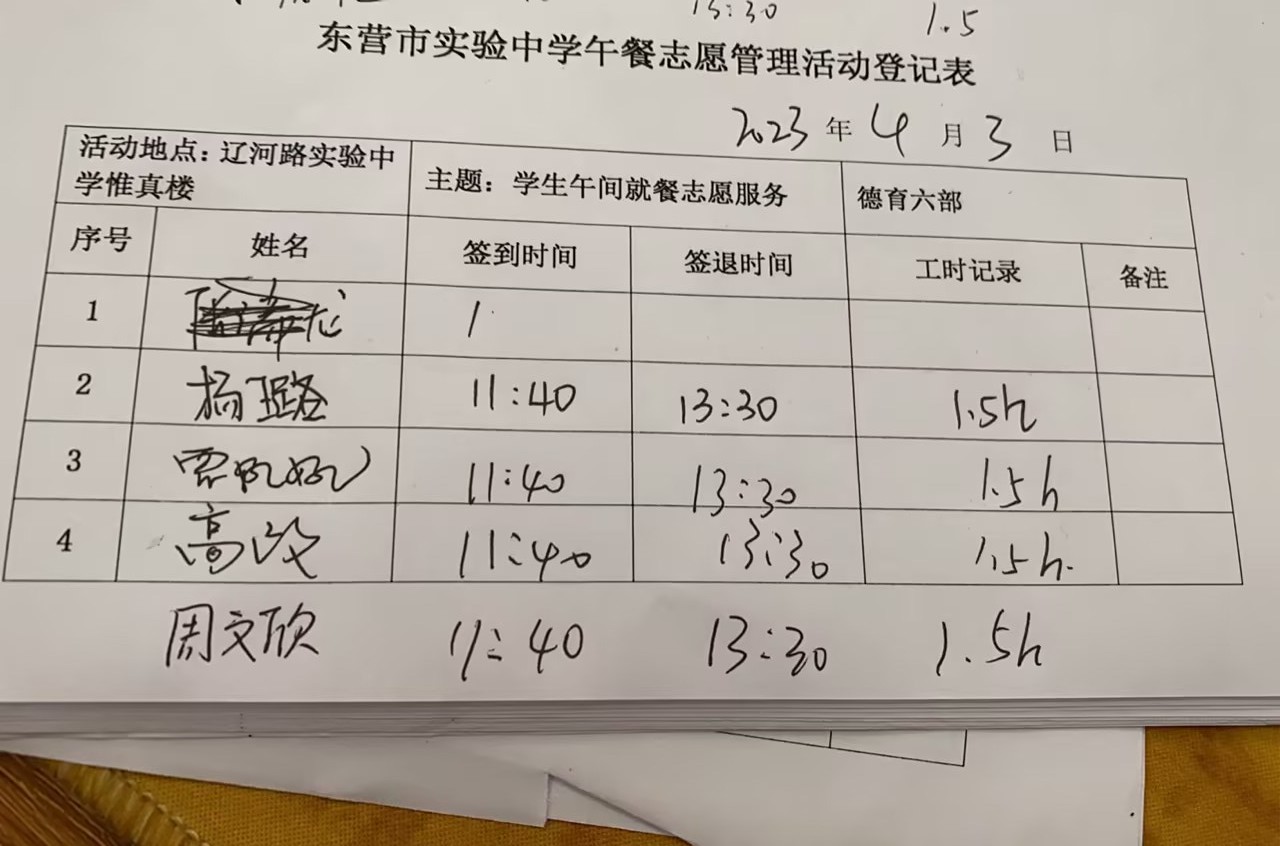 13:30 1.5
东营市实验中学午餐志愿管理活动登记表
2023年4月3日
活动地点：辽河路实验中
学惟真楼
主题：学生午间就餐志愿服务
德育六部
序号 姓名 签到时间 签退时间 工时记录 备注
1 1
2 杨璐 11:40 13:30 1.5h
3 11:40 13:30 1.5h
4 高政 11:40 13:30 1.5h.
周文欣 11:40 13:30 1.5h